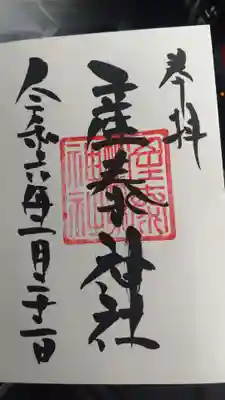 奉拝
産泰神社
令和六年一月二十一日